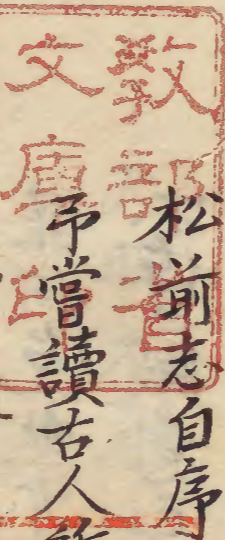 教部省
文庫印
松前志自序
予嘗讀古人